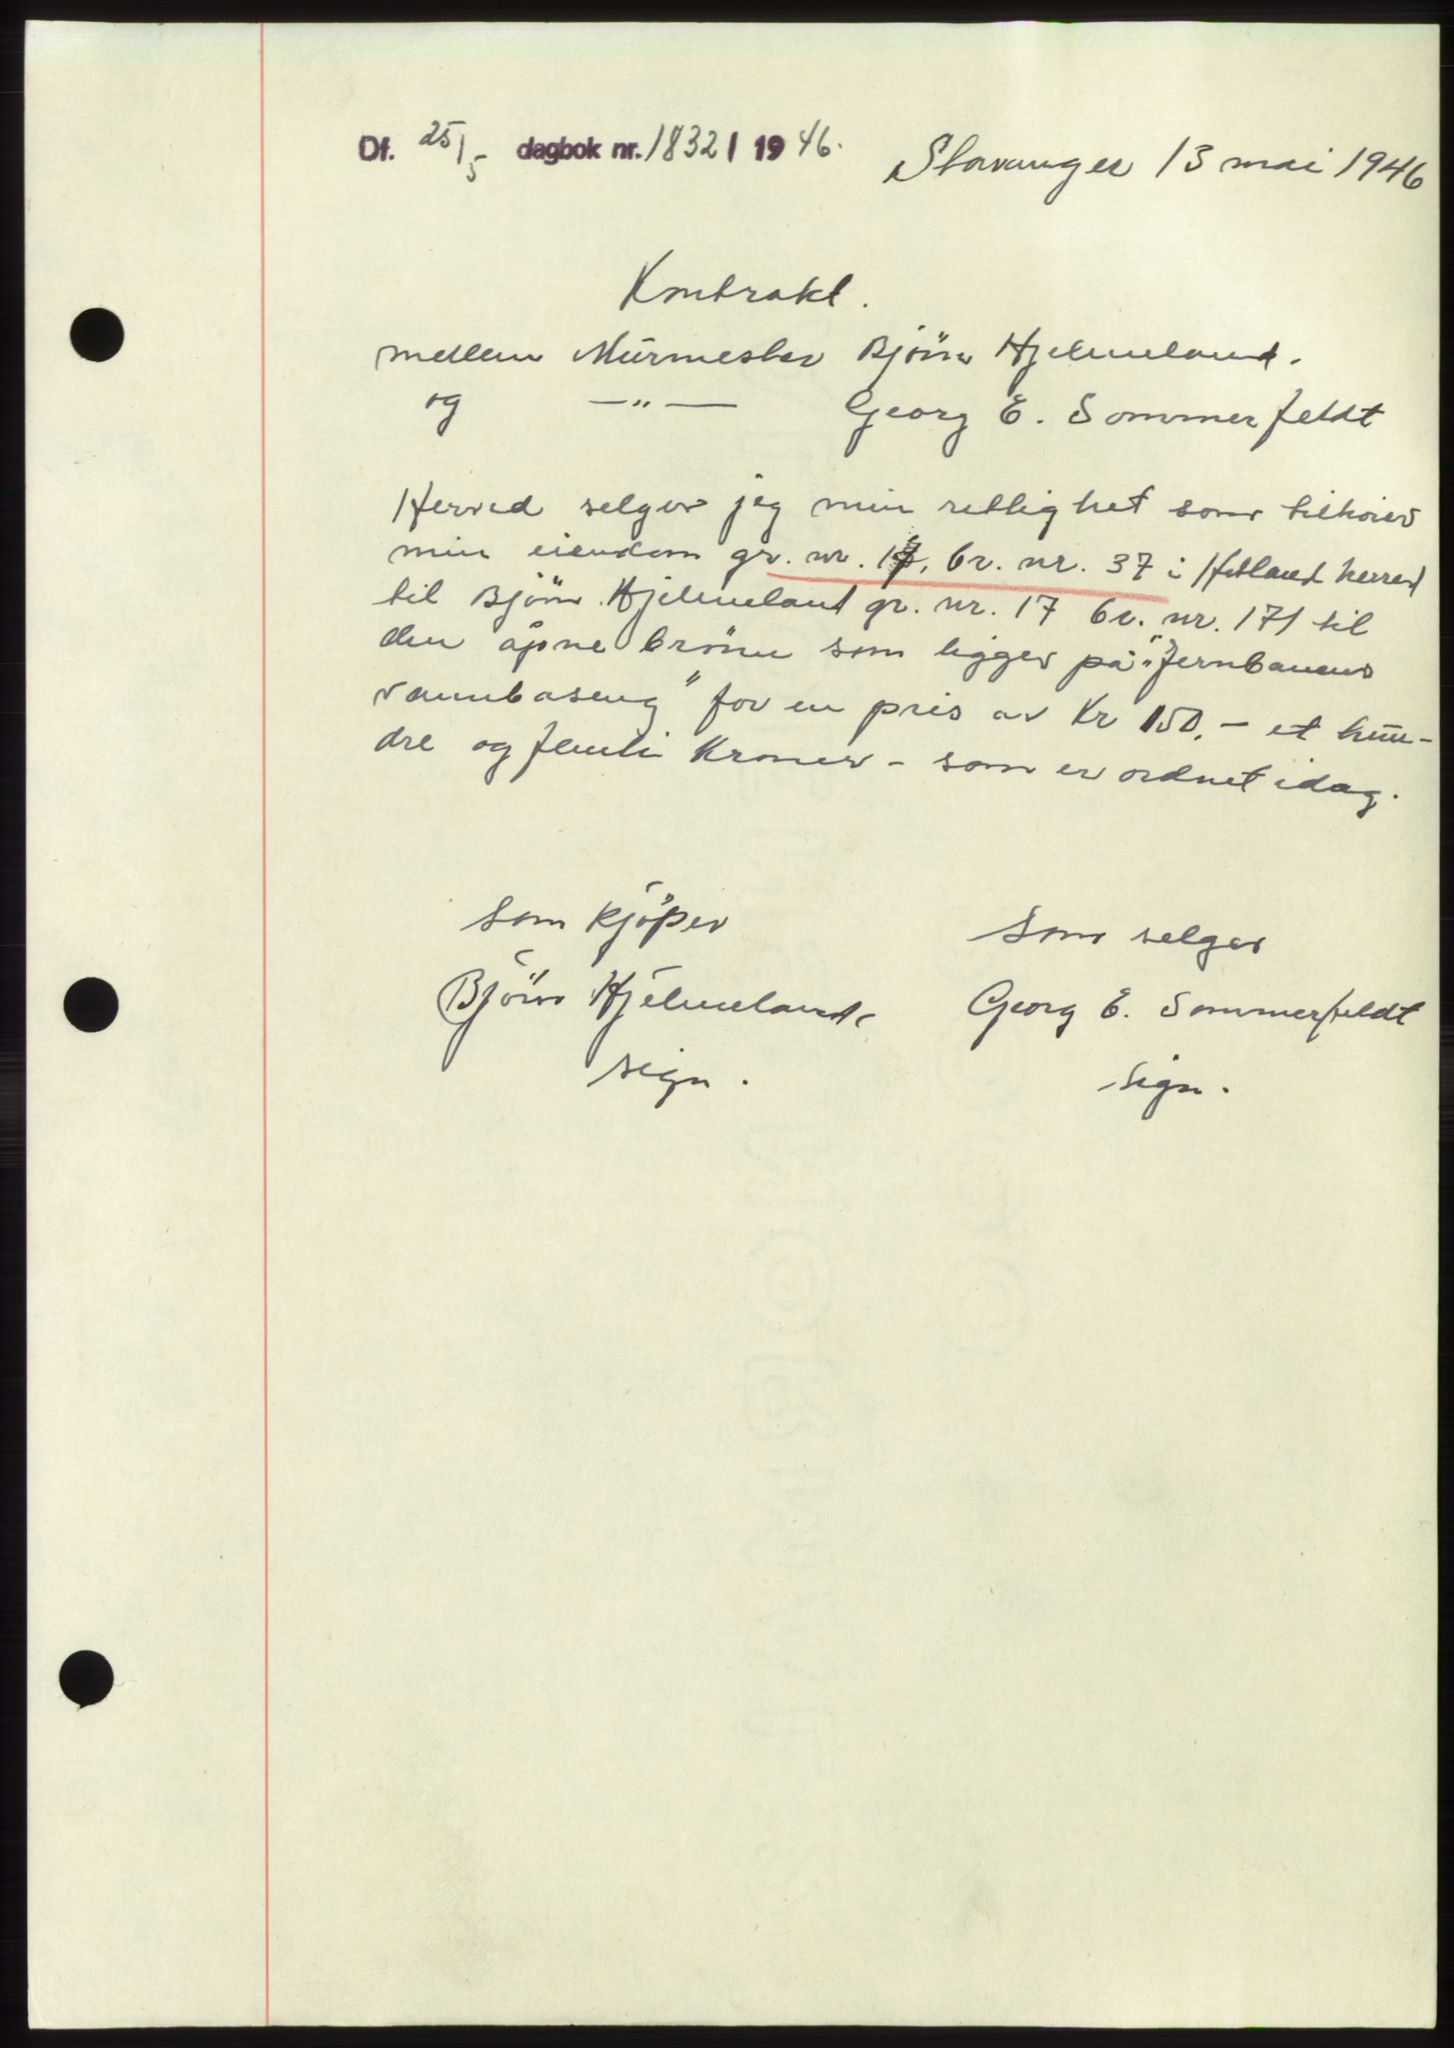 Df. 25/5 dagbok nr. 1832 / 1946.
Stavanger 13 mai 1946
Kontrakt.
mellem Murmester Bjönn Hjelmeland.
og —"— Georg E. Sommerfeldt
Herved selger jeg min rettighet som tilhörer
min eiendom gr. nr. br. nr. 37 i Hetland herred
til Björn Hjelmeland gr. nr. 17 br. nr. 171 til
den åpne brönn som ligger på "Jernbanens
vannbaseng" for en pris av Kr 150.- et hun-
dre og femti Kroner - som er ordnet idag.
Som kjöper
Som selger
Björn Hjelmeland.
Georg E. Sommerfeldt
sign.
sign.